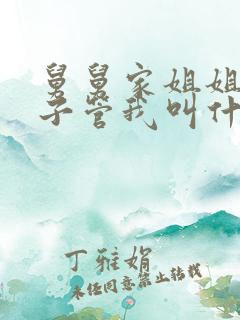 舅舅家姐姐
子管我叫什
丁雅娟
未经同意禁止转载